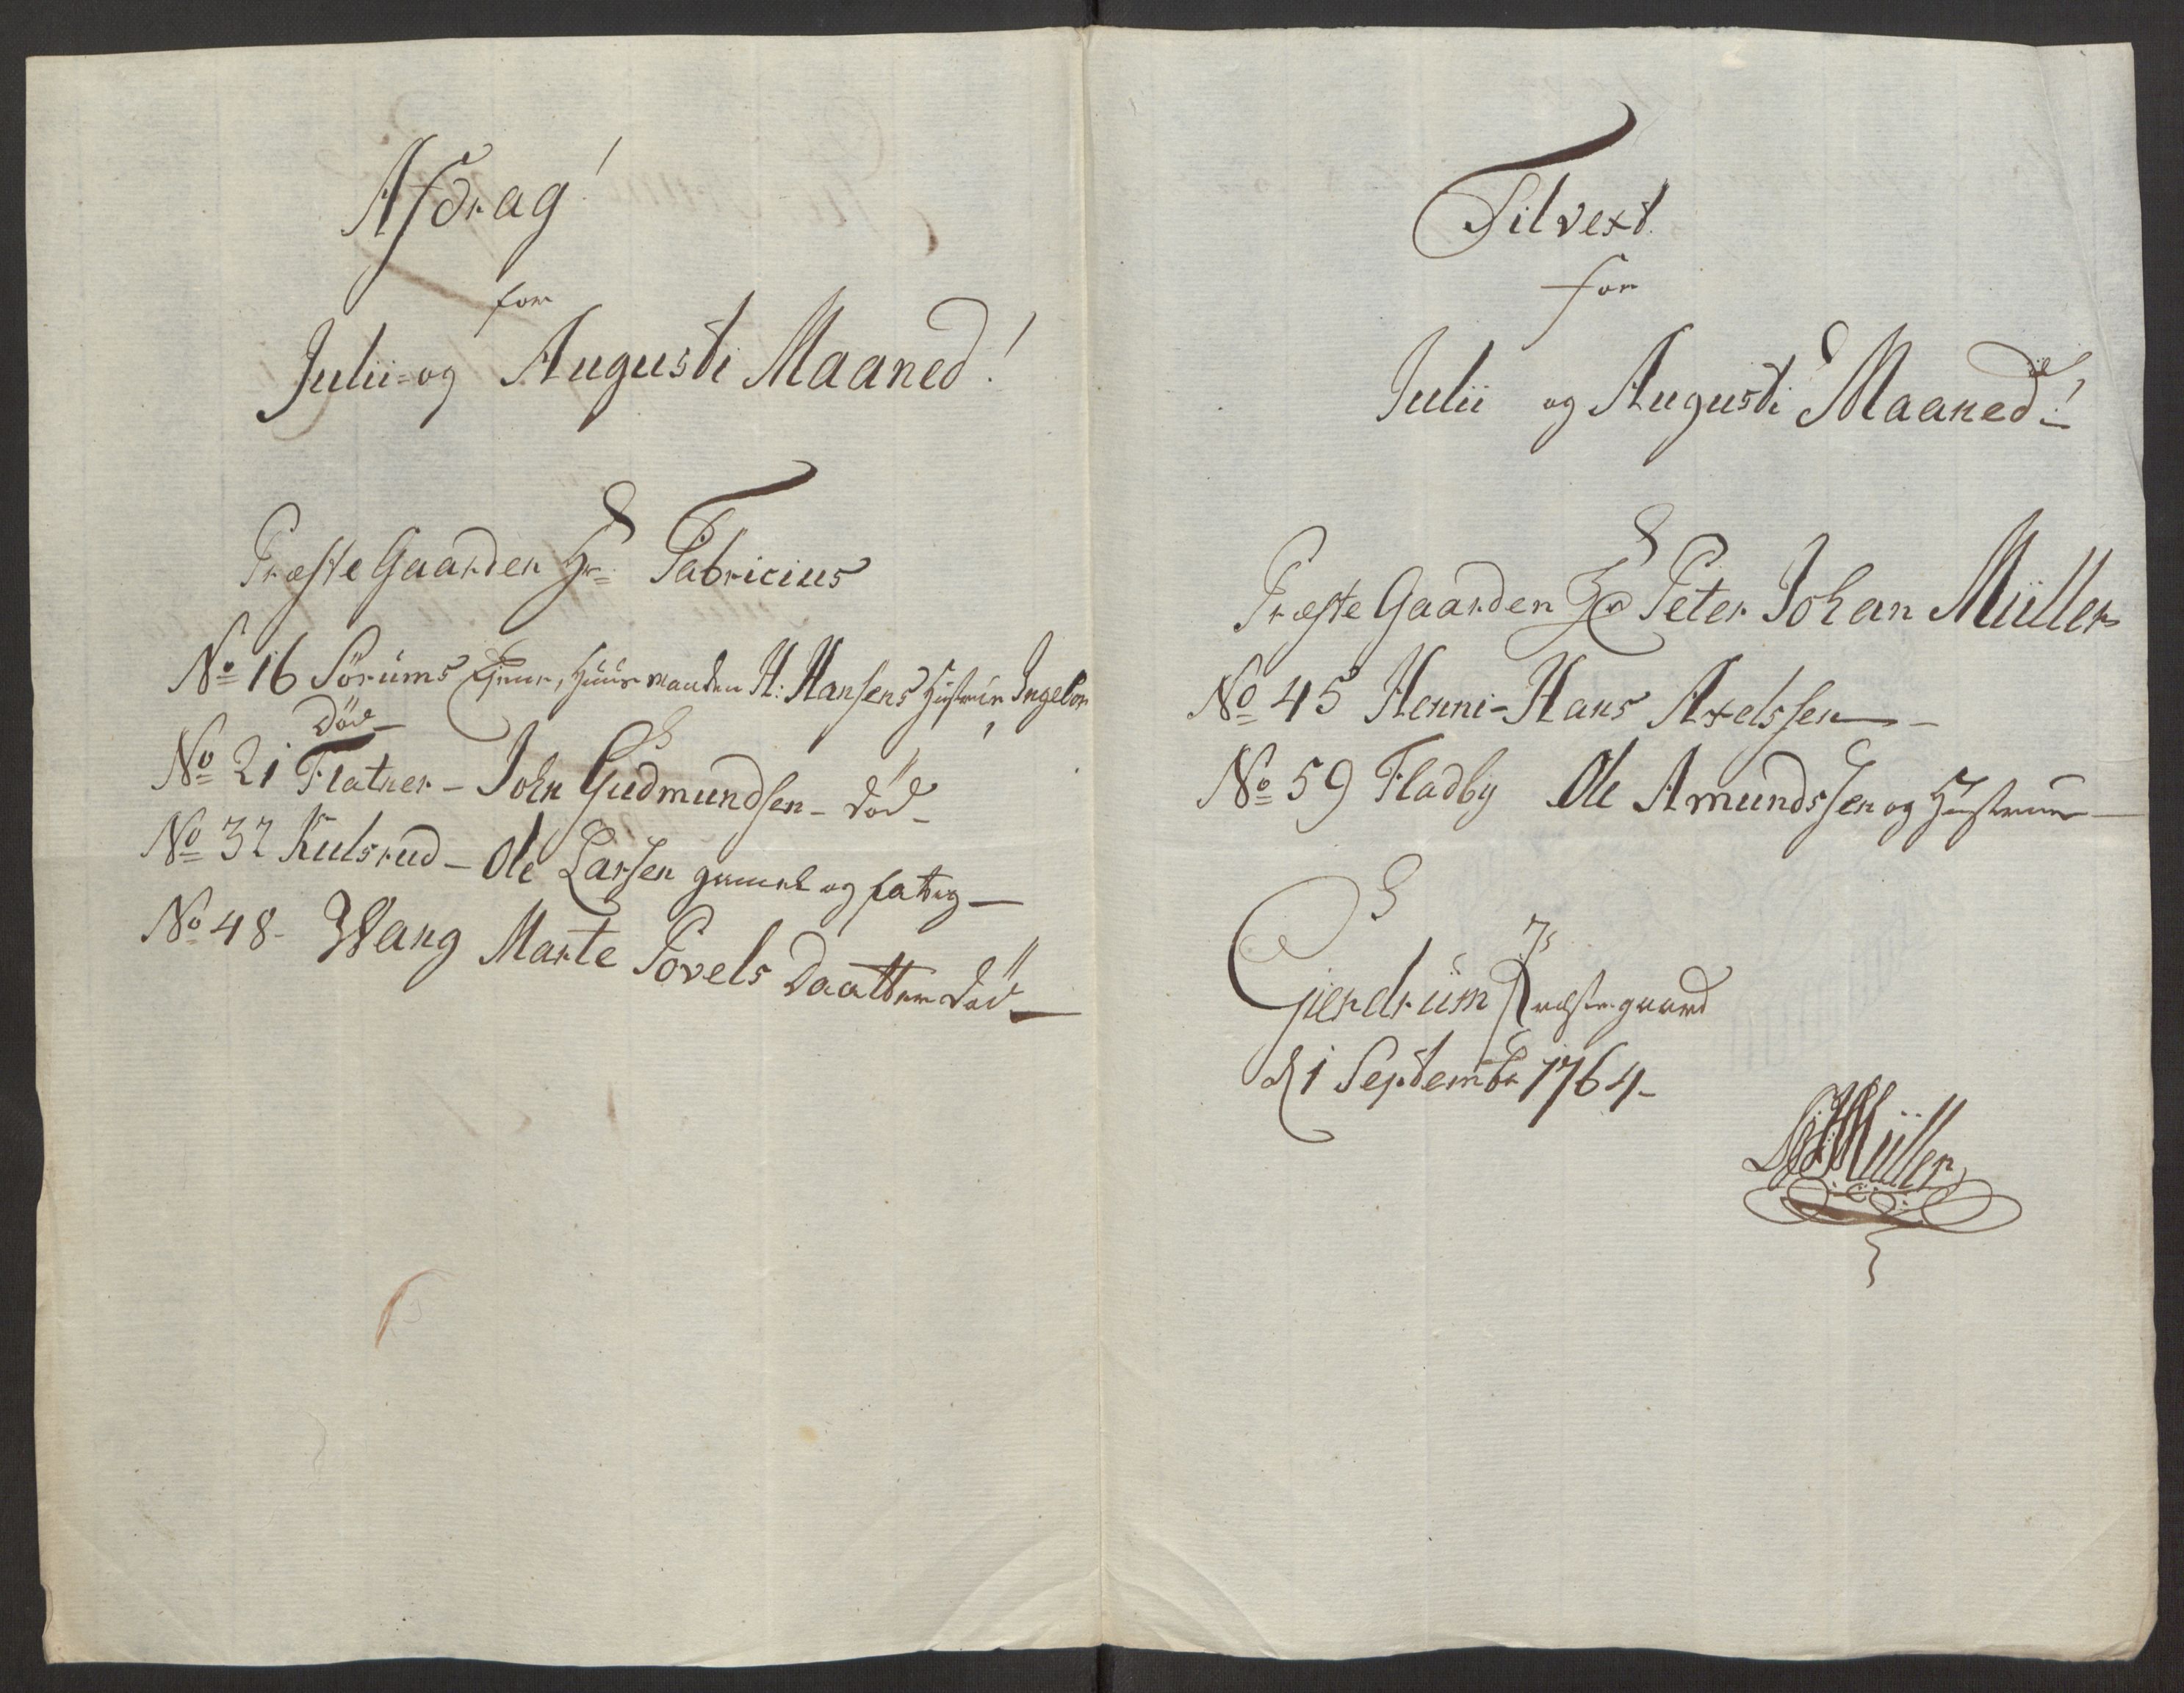 Afdrag!
for
Julii- og Augusti Maaned!
Præste Gaarden Hr. Fabricius
No 16 Sörums Ejene, Huusmanden H: Hansens Hustrue Ingebor
död
No 21 Flatner - John Gudmundsen - död -
No 32 Kulsrud - Ole Larsen gamel og fatig -
No 48 - Wang Marte Povels Daatter död -
Tilvext
for
Julii og Augusti Maaned!
Præste Gaarden Hr Peter Johan Müller
No 45 Henni - Hans Axelssen -
No 59 Fladby Ole Amundssen og Hustrue -
Gierdrum Præstegaard
d 1 Septembr 1764 -
Müller